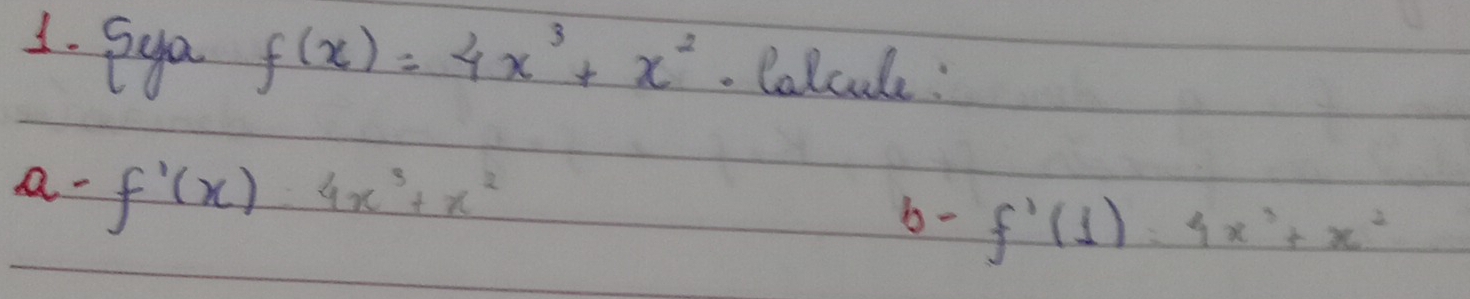 1. Seja f(x) = 4x³ + x². Calcule:
a - f'(x) = 4x³ + x² b - f'(1) = 4x³ + x²